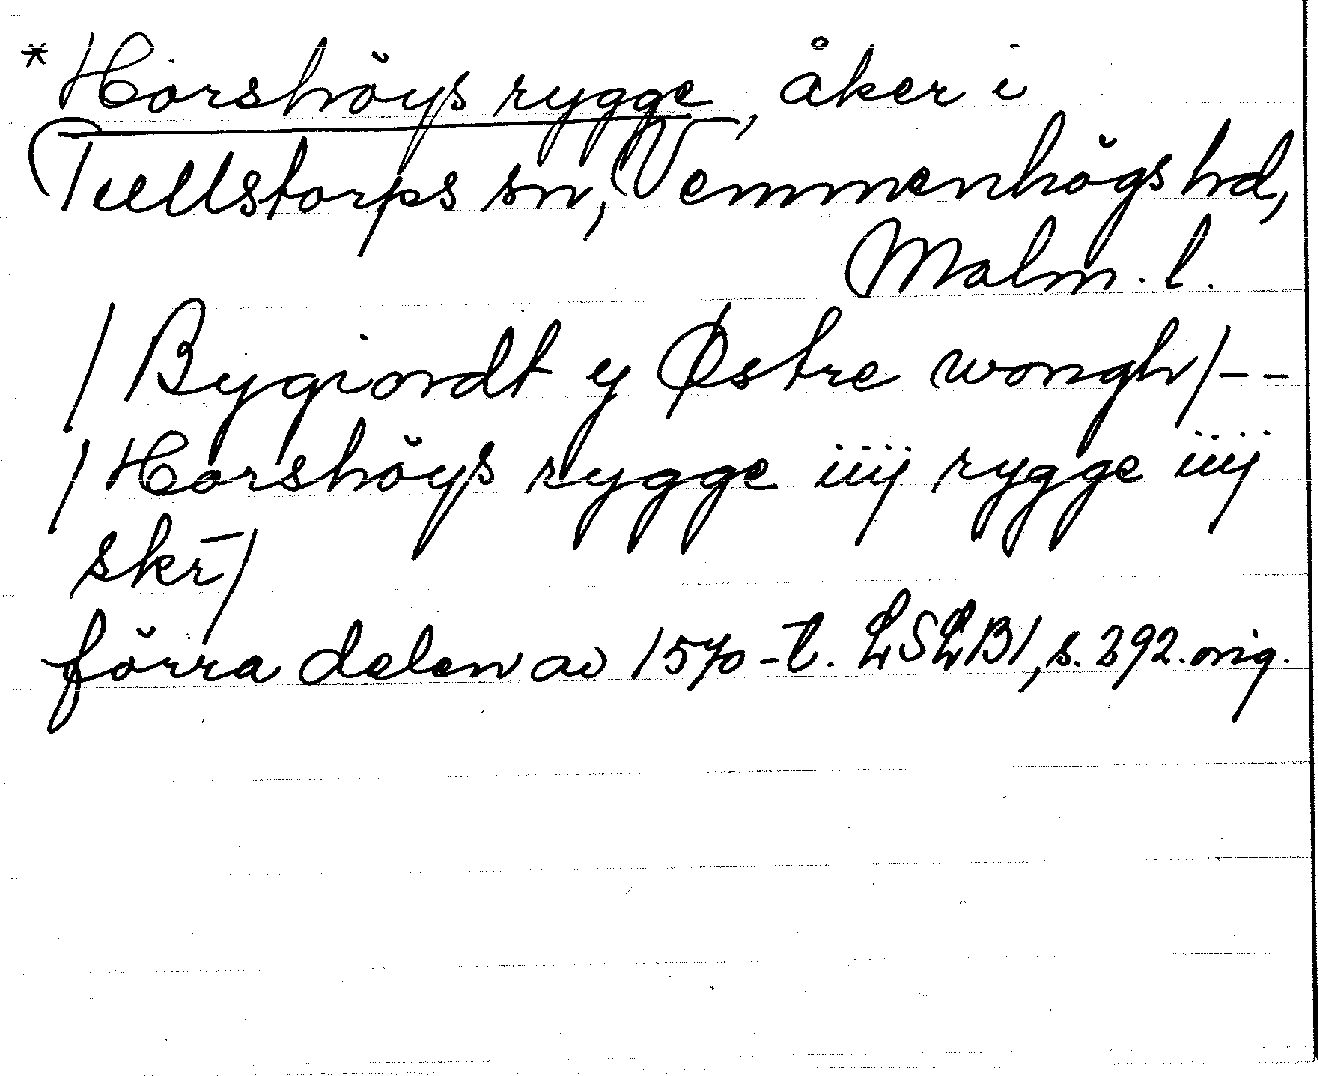 * Horshöys rygge, åker i
Tullstorps sn, Vemmenhögs hd,
Malm. l.
/ Bygiordt y Østre wongh/ --
/ Horshöys rygge iiij rygge iiij
skr̄ /
förra delen av 1570-t. LSLB1, s. 392. orig.